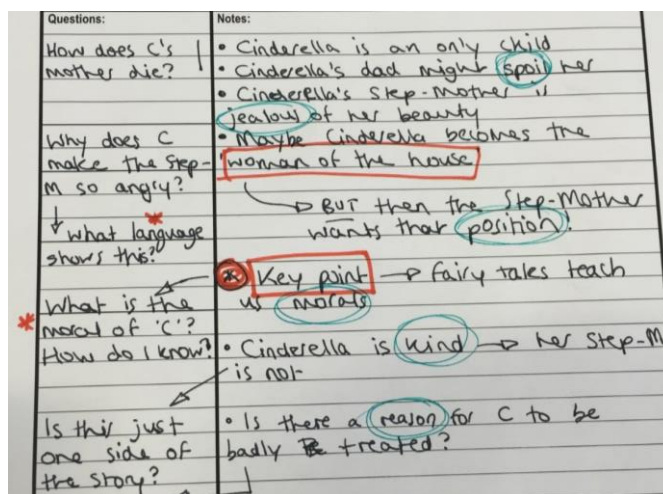 Questions:
How does C's
mother die?
Why does C
make the Step-
M so angry?
what language
shows this?
What is the
moral of 'C'?
How do I know?
Is this just
one side of
the story?
Notes:
• Cinderella is an only child
• Cinderella's dad might spoil her
• Cinderella's Step-Mother is
jealous of her beauty
• Maybe Cinderella becomes the
woman of the house
BUT then the Step-Mother
wants that position!
* Key point → fairy tales teach
us morals
• Cinderella is kind → her Step-M
is not
• Is there a reason for C to be
badly treated?